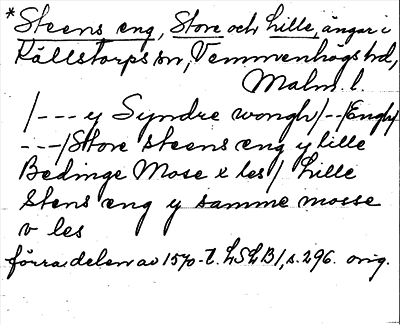 *Steens eng, Store och Lille, ängar i
Källstorps sn, Vemmenhögs hd,
Malm. l.
/--- y Syndre wongh/--/Engh/
---/Store steens eng y lille
Bedinge Mose x les/ Lille
Stens eng y samme mosse
v les
förra delen av 1570-t. LSLB1, s. 296. orig.